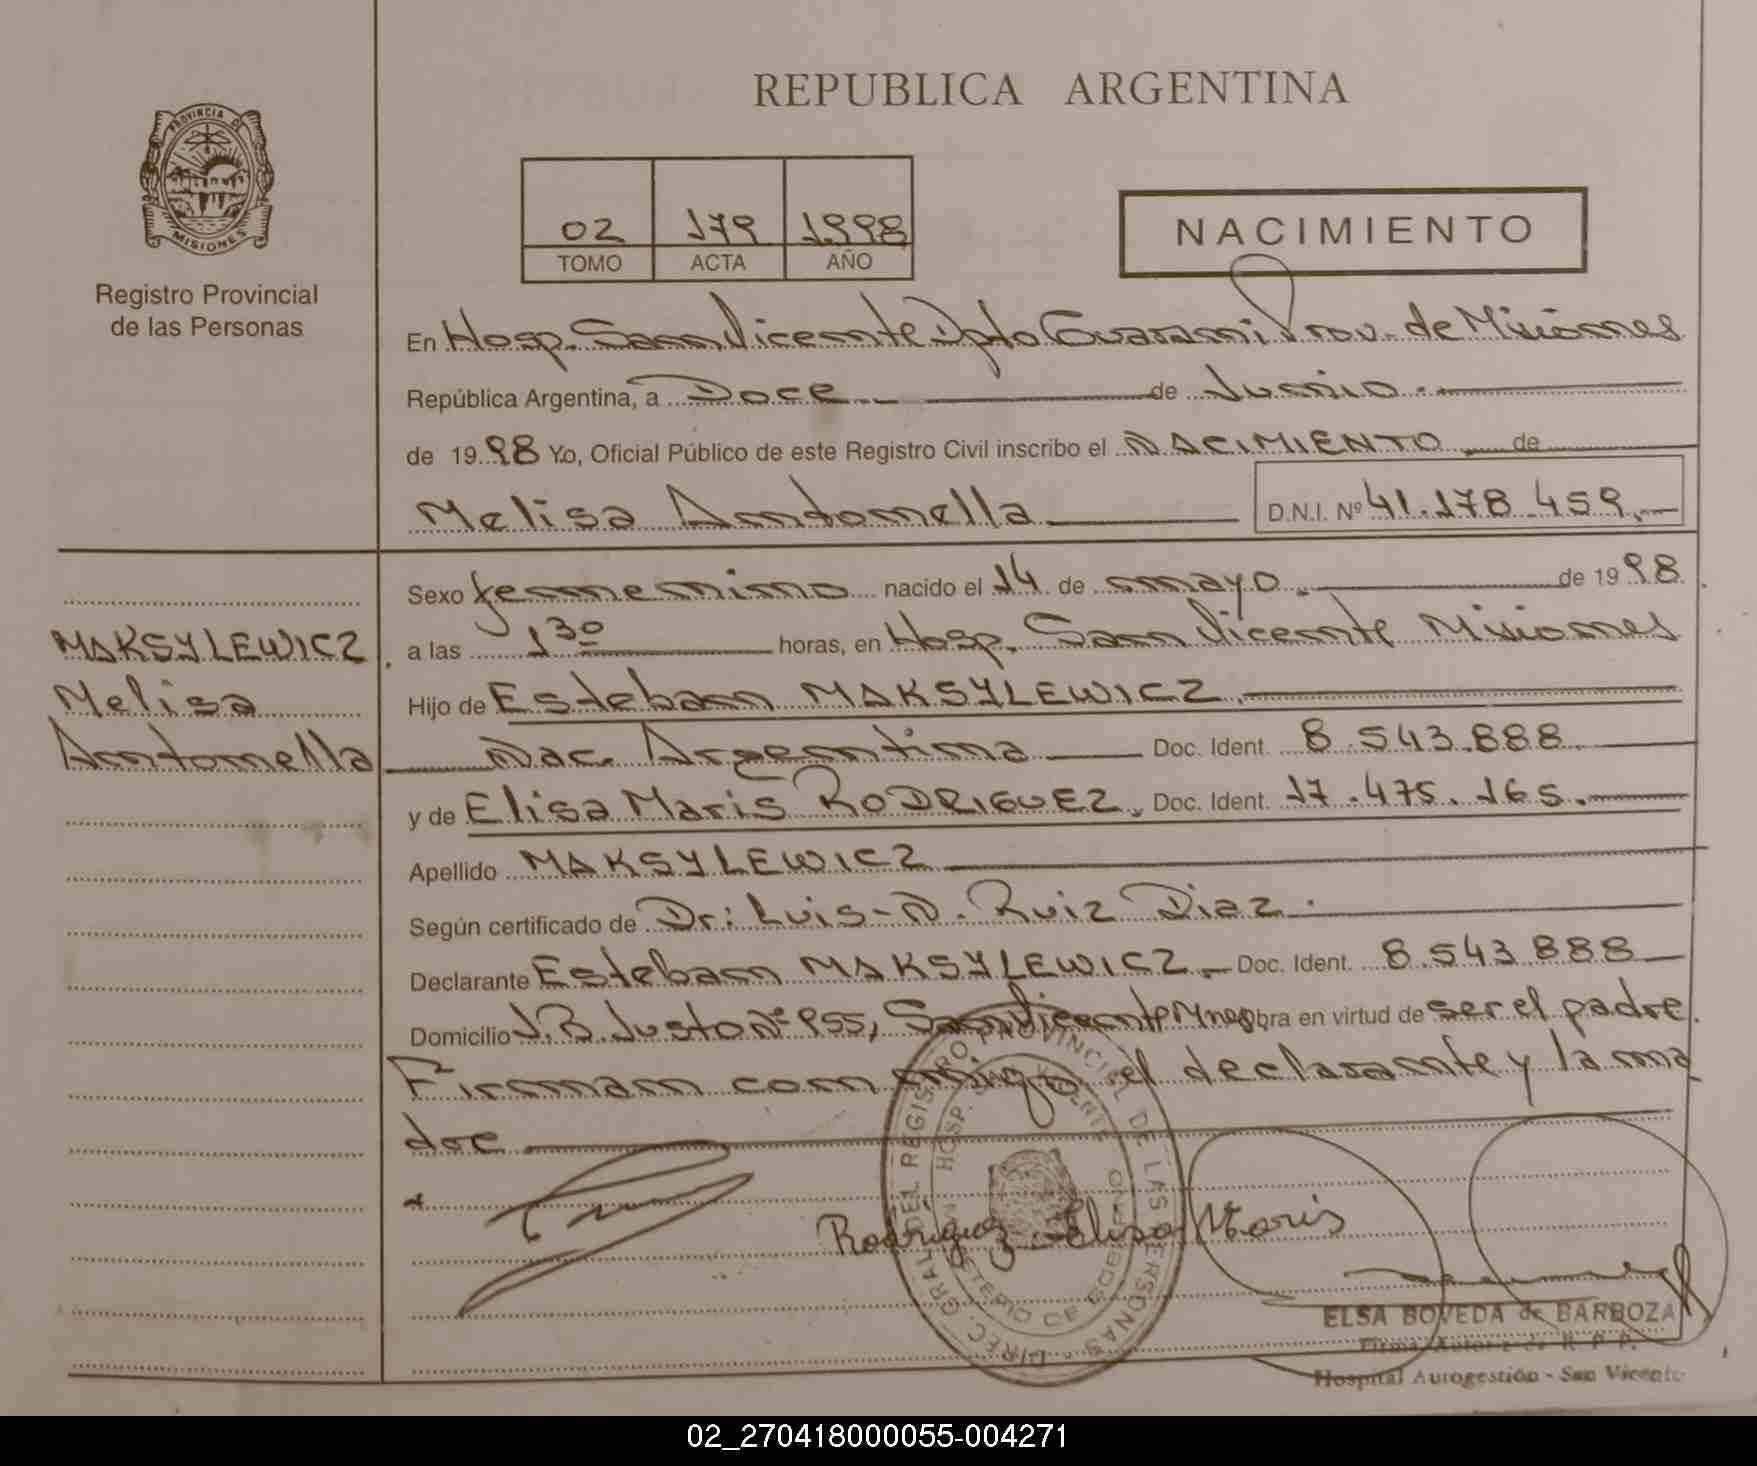 REPUBLICA ARGENTINA
PROVINCIA DE
MISIONES
Registro Provincial
de las Personas
02 179 1998
TOMO ACTA AÑO
NACIMIENTO
En Hosp. San Vicente Dpto Guarani Prov. de Misiones
República Argentina, a Doce.- de Junio.-
de 1998 Yo, Oficial Público de este Registro Civil inscribo el NACIMIENTO de
Melisa Antonella D.N.I. Nº 41.178.459.-
Sexo femenino nacido el 14 de mayo.- de 1998.
a las 1 30 horas, en Hosp. San Vicente Misiones
MAKSYLEWICZ
Melisa
Antonella
Hijo de Esteban MAKSYLEWICZ.
Nac. Argentina Doc. Ident. 8.543.888.
y de Elisa Maris RODRIGUEZ, Doc. Ident. 17.475.165.-
Apellido MAKSYLEWICZ
Según certificado de Dr: Luis-N. Ruiz Diaz.
Declarante Esteban MAKSYLEWICZ.- Doc. Ident. 8.543.888
Domicilio J.B. Justo Nº 955, San Vicente Mnes obra en virtud de ser el padre.
Firman con migo el declarante y la ma
dre
DIREC. GRAL. DEL REGISTRO PROVINCIAL DE LAS PERSONAS
HOSP. SAN VICENTE
MINISTERIO DE GOBIERNO
Rodriguez Elisa Maris
ELSA BOVEDA de BARBOZA
Firma Autor de R. P. P.
Hospital Autogestión - San Vicente
02_270418000055-004271